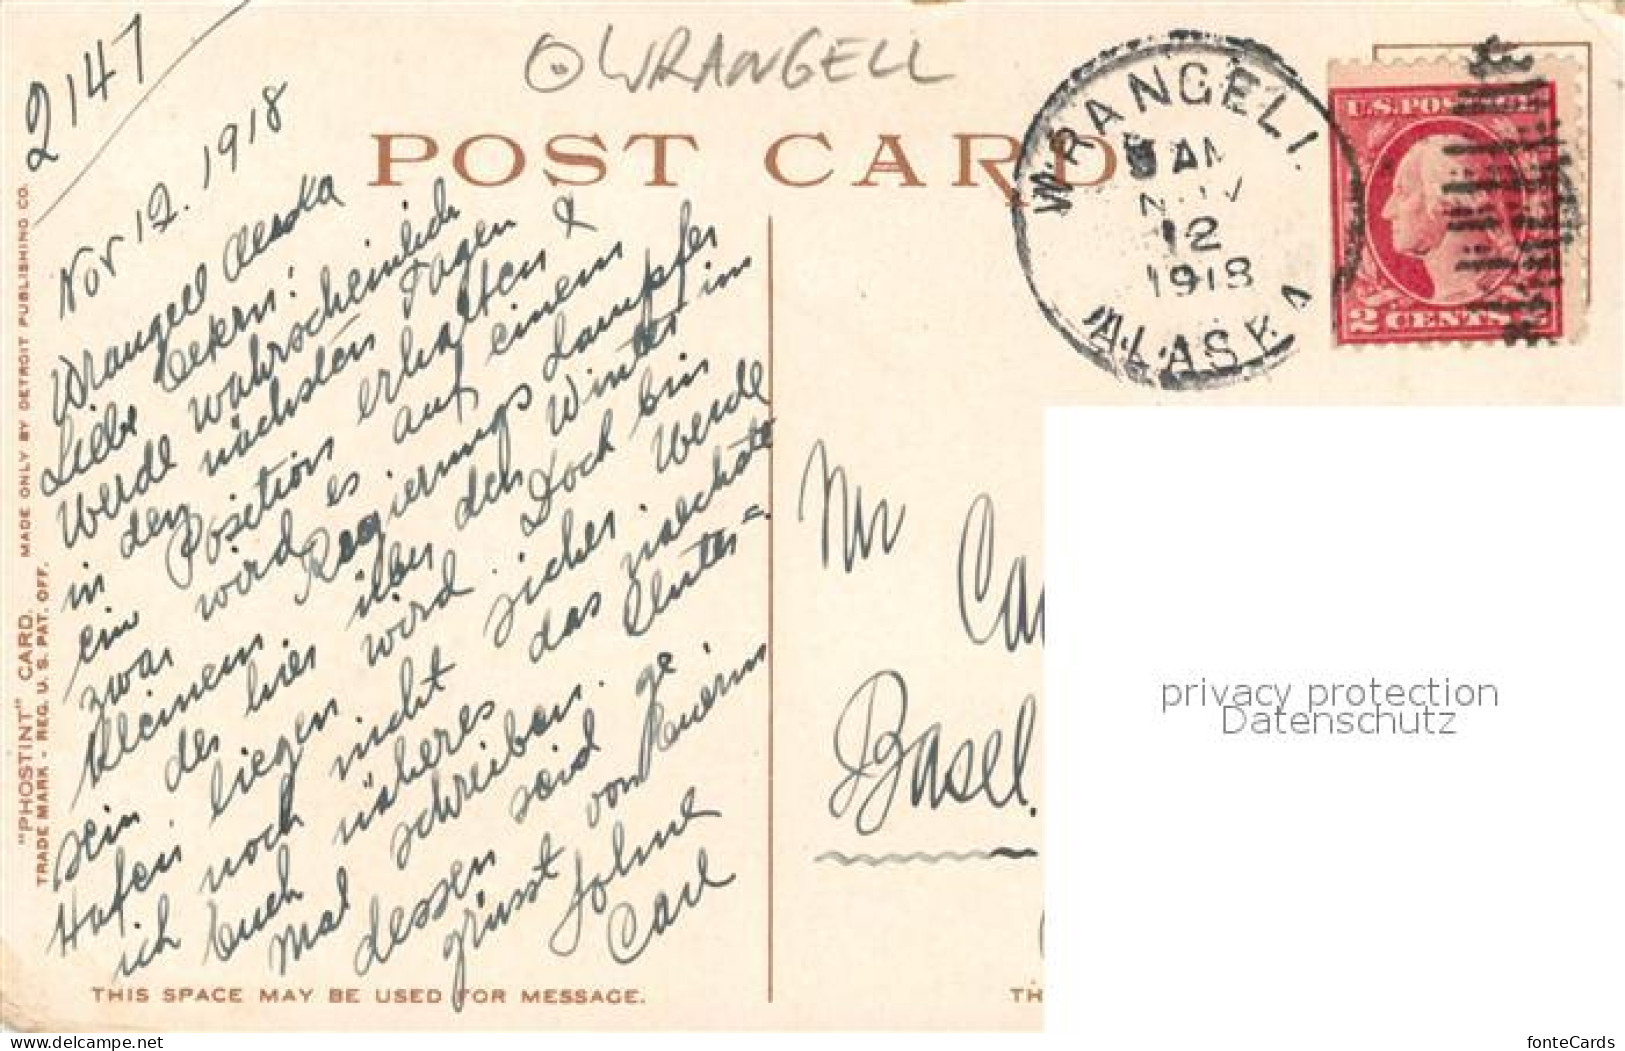 2147
WRANGELL
POST CARD
WRANGELL
AM
NOV
12
1918
ALASKA
U.S. POSTAGE
2 CENTS 2
Nov 12. 1918
Wrangell Alaska
Liebe Eltern!
Werde wahrscheinlich
in den nächsten Tagen
ein Position erhalten &
zwar wird es auf einem
kleinem Regierungs Dampfer
sein der hier über den Winter im
Hafen liegen wird. Doch bin
ich noch nicht sicher. Werde
Euch näheres das naechste
Mal schreiben.
dessen seid ge
grüsst von Euerm
Sohne
Carl
Mr Ca
Basel.
"PHOSTINT" CARD. MADE ONLY BY DETROIT PUBLISHING CO.
TRADE MARK - REG. U. S. PAT. OFF.
THIS SPACE MAY BE USED FOR MESSAGE.
TH
privacy protection
Datenschutz
www.delcampe.net
fonteCards